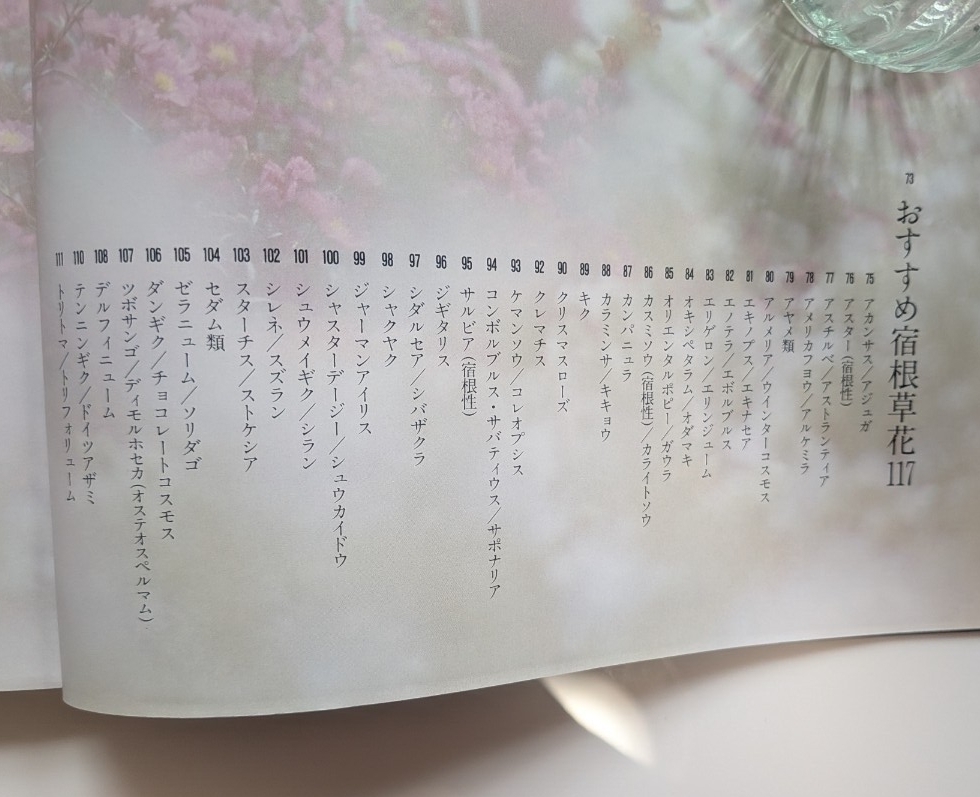 73 おすすめ宿根草花117
75 アカンサス/アジュガ
76 アスター(宿根性)
77 アスチルベ/アストランティア
78 アメリカフヨウ/アルケミラ
79 アヤメ類
80 アルメリア/ウインターコスモス
81 エキノプス/エキナセア
82 エノテラ/エボルブルス
83 エリゲロン/エリンジューム
84 オキシペタラム/オダマキ
85 オリエンタルポピー/ガウラ
86 カスミソウ(宿根性)/カライトソウ
87 カンパニュラ
88 カラミンサ/キキョウ
89 キク
90 クリスマスローズ
92 クレマチス
93 ケマンソウ/コレオプシス
94 コンボルブルス・サバティウス/サポナリア
95 サルビア(宿根性)
96 ジギタリス
97 シダルセア/シバザクラ
98 シャクヤク
99 ジャーマンアイリス
100 シャスターデージー/シュウカイドウ
101 シュウメイギク/シラン
102 シレネ/スズラン
103 スターチス/ストケシア
104 セダム類
105 ゼラニューム/ソリダゴ
106 ダンギク/チョコレートコスモス
107 ツボサンゴ/ディモルホセカ(オステオスペルマム)
108 デルフィニューム
110 テンニンギク/ドイツアザミ
111 トリトマ/トリフォリューム